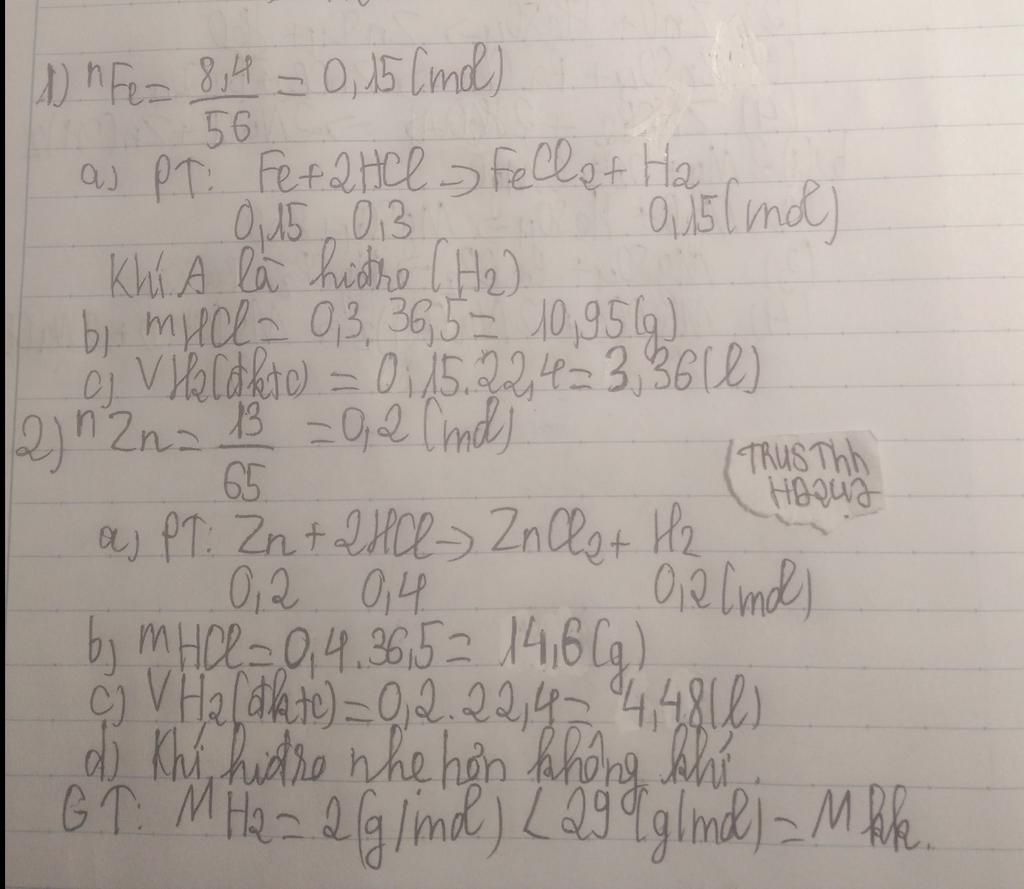 1) nFe = 8,4/56 = 0,15 (mol)
a) PT: Fe + 2HCl → FeCl2 + H2
0,15 0,3 0,15 (mol)
Khí A là hiđro (H2)
b) mHCl = 0,3. 36,5 = 10,95 (g)
c) VH2(đktc) = 0,15.22,4 = 3,36 (l)
2) nZn = 13/65 = 0,2 (mol)
TRUSThh
a) PT: Zn + 2HCl → ZnCl2 + H2
0,2 0,4 0,2 (mol)
b) mHCl = 0,4.36,5 = 14,6 (g)
c) VH2(đktc) = 0,2.22,4 = 4,48 (l)
d) Khí hiđro nhẹ hơn không khí.
GT: MH2 = 2 (g/mol) < 29 (g/mol) = Mkk.